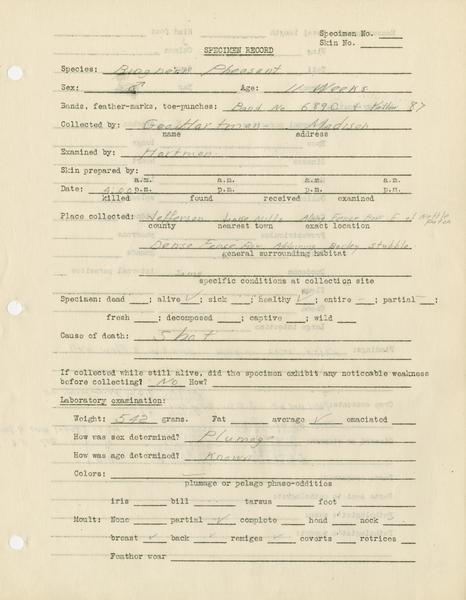 Specimen No.
Skin No.
SPECIMEN RECORD
Species: Ringneck Pheasant
Sex: ♂ Age: 11 Weeks
Bands, feather-marks, toe-punches: Band No 6890 & 87
Collected by: Geo Hartman Madison
name address
Examined by: Hartman
Skin prepared by:
a.m. a.m. a.m. a.m.
Date: 4:00 p.m. p.m. p.m. p.m.
killed found received examined
Place collected: Jefferson Lake Mills Along Fence Row E of Nettle patch
county nearest town exact location
Dense Fence Row Adjoining Barley Stubble
general surrounding habitat
Same
specific conditions at collection site
Specimen: dead ; alive ✓; sick ; healthy ✓; entire ; partial ;
fresh ; decomposed ; captive ; wild
Cause of death: Shot
If collected while still alive, did the specimen exhibit any noticable weakness
before collecting? No How?
Laboratory examination:
Weight: 542 grams. Fat average ✓ emaciated
How was sex determined? Plumage
How was age determined? Known
Colors:
plumage or pelage phase-oddities
iris bill tarsus foot
Moult: None partial ✓ complete head neck
breast ✓ back ✓ remiges ✓ coverts retrices
Feather wear